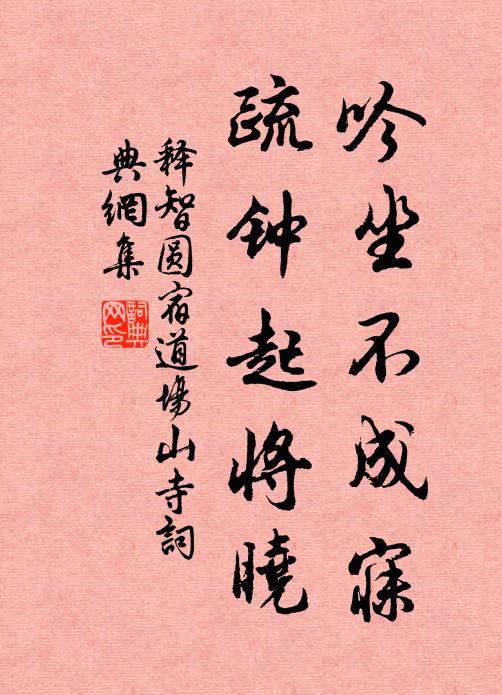 吟坐不成寐
疏钟起将晓
释智圆宿道场山寺词
典網集
詞典
网印